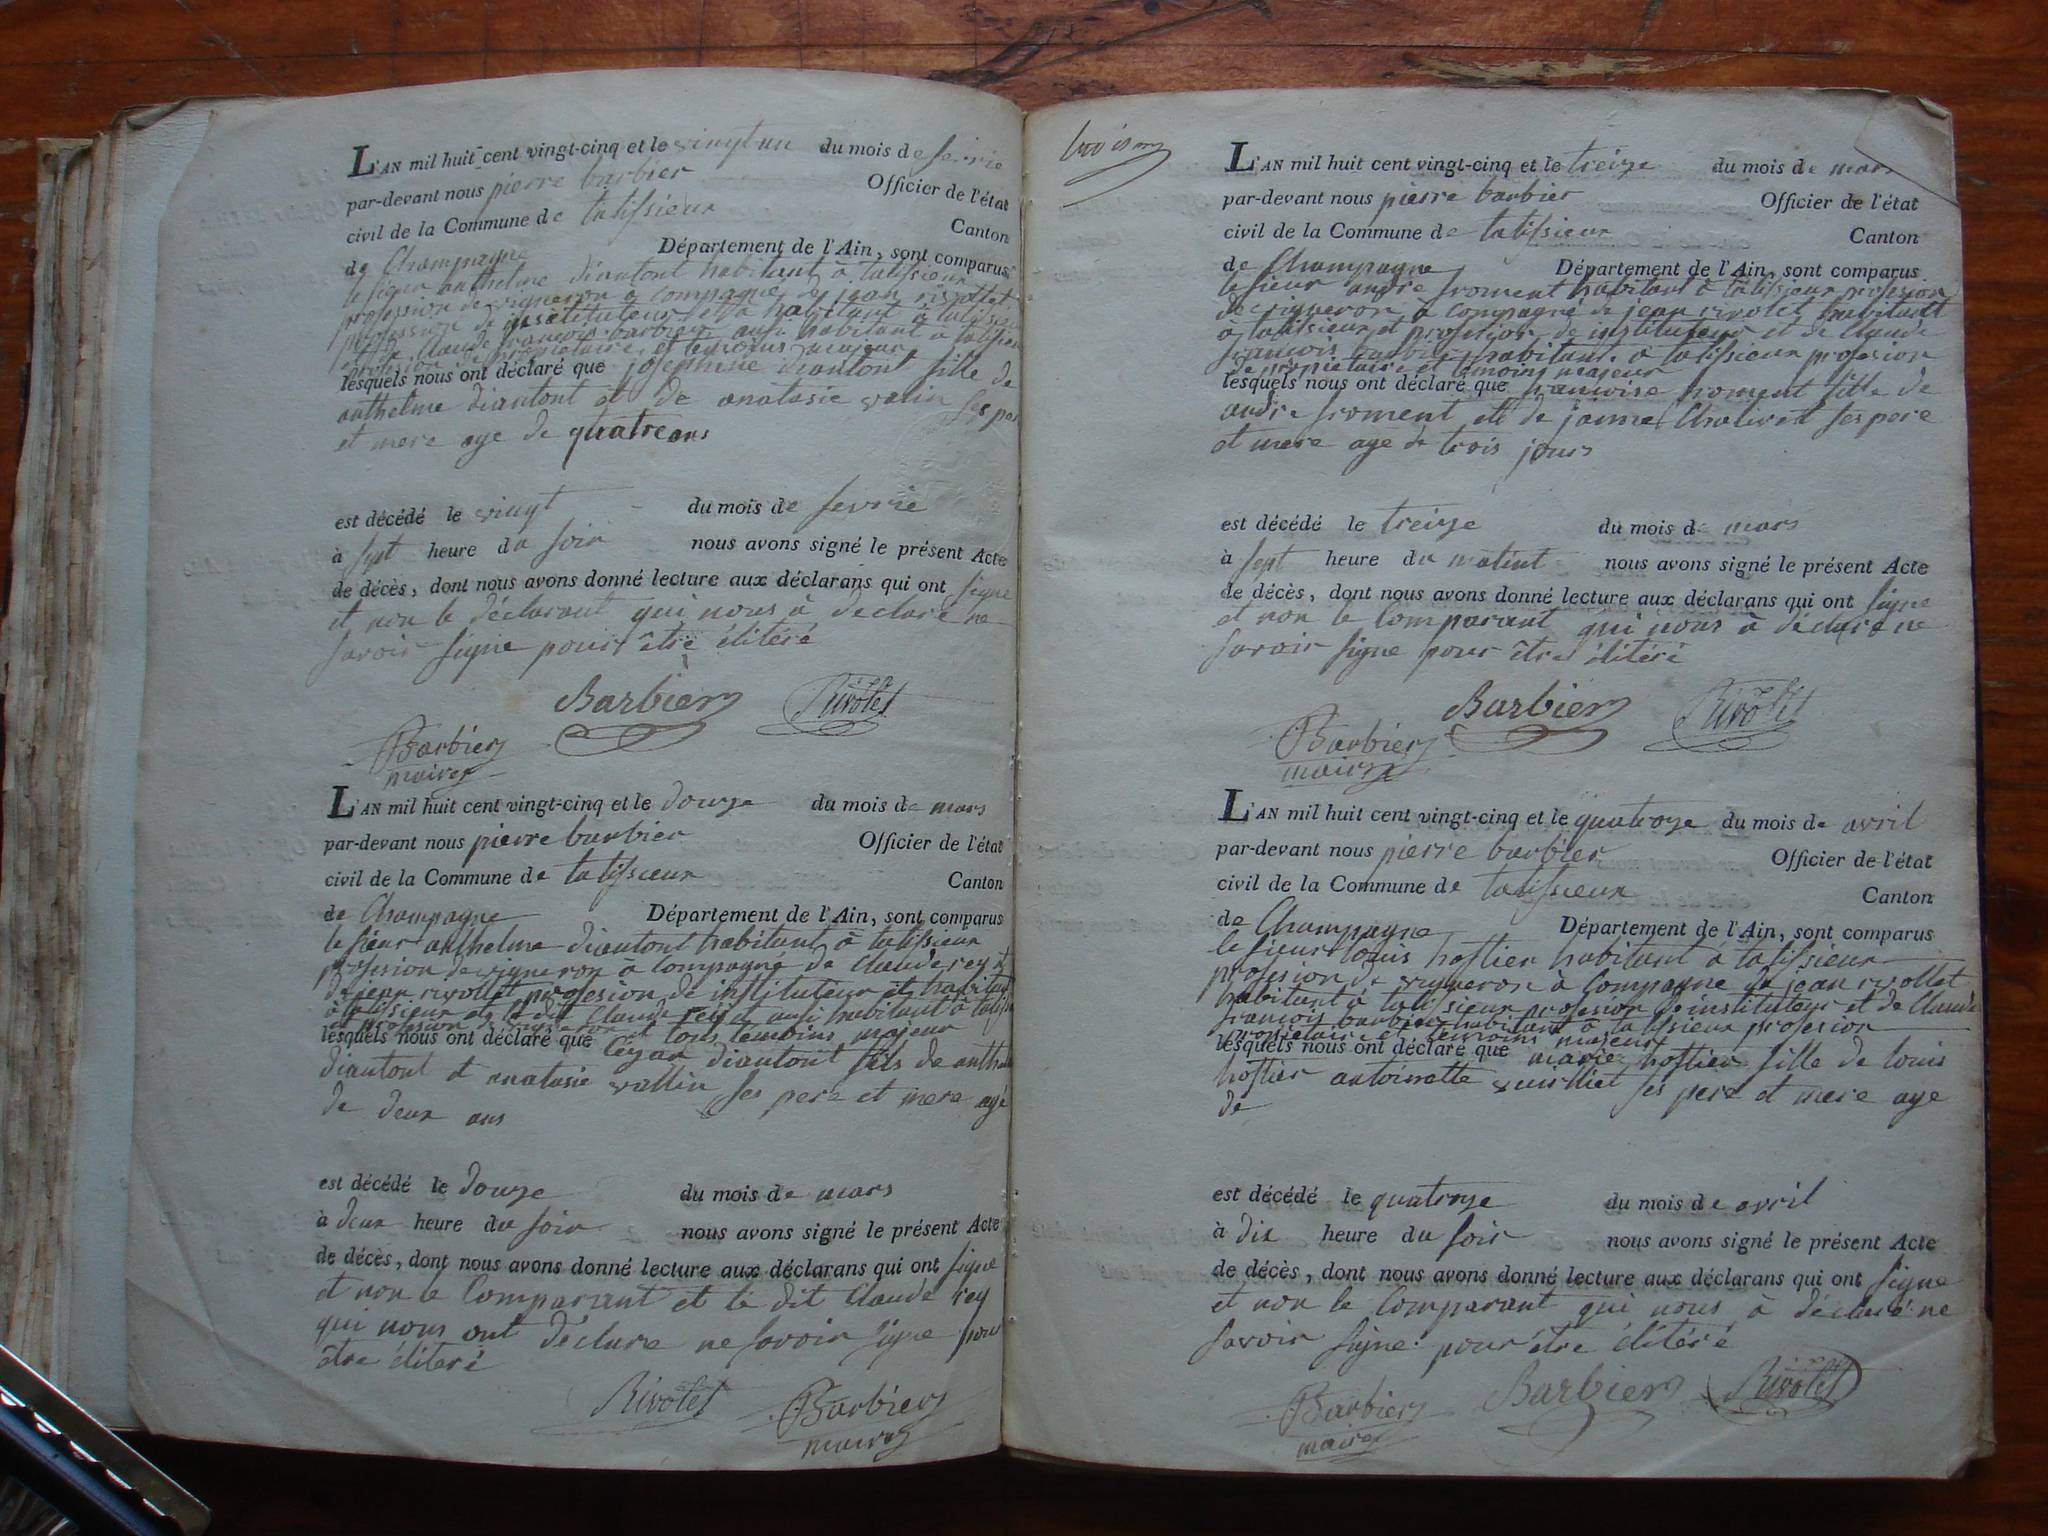 L'AN mil huit cent vingt-cinq et le vingt un du mois de fevrie
par-devant nous pierre barbier Officier de l'état
civil de la Commune de talissieux Canton
de Champagne Département de l'Ain, sont comparus
le sieur anthelme diantont habitant à talissieux
profession de vigneron à compagne de jean rivollet
profession de instituteur et à habitant à talissieux
et de Claude françois barbier aussi habitant à talissieux
profession de propriétaire et temoins majeur
lesquels nous ont déclaré que josephine diantont fille de
anthelme diantont et de anatasie valin ses per
et mere age de quatre ans
est décédé le vingt du mois de fevrie
à sept heure du soir nous avons signé le présent Acte
de décès, dont nous avons donné lecture aux déclarans qui ont signe
et non le déclarant qui nous à declaré ne
savoir signe pour être élitéré
Barbier Rivolet
PBarbier
maire
L'AN mil huit cent vingt-cinq et le douze du mois de mars
par-devant nous pierre barbier Officier de l'état
civil de la Commune de talissieux Canton
de Champagne Département de l'Ain, sont comparus
le sieur anthelme diantont habitant à talissieux
profesion de vigneron à compagné de Claude rey et
de jean rivollet profesion de instituteur et habitant
à talissieux et le dit Claude rey et aussi habitant à talissieux
et profesion de vigneron et tous temoins majeur
lesquels nous ont déclaré que Cézar diantont fils de anthelme
diantont et anatasie vallin ses pere et mere agé
de deux ans
est décédé le douze du mois de mars
à deux heure du soir nous avons signé le présent Acte
de décès, dont nous avons donné lecture aux déclarans qui ont signe
et non le Comparant et le dit Claude rey
qui nous ont déclare ne savoir signe pour
être éliteré
Rivolet PBarbier
maire
L'AN mil huit cent vingt-cinq et le treize du mois de mars
par-devant nous pierre barbier Officier de l'état
civil de la Commune de talissieux Canton
de Champagne Département de l'Ain, sont comparus
le sieur andre froment habitant à talissieux profesion
de vigneron à compagné de jean rivolet habitant
à talissieux et profesion de instituteur et de Claude
francois barbier habitant à talissieux profesion
de propietaire et temoins majeur
lesquels nous ont déclaré que francoise froment fille de
andre froment et de janne ses pere
et mere age de trois jours
est décédé le treize du mois de mars
à sept heure du matint nous avons signé le présent Acte
de décès, dont nous avons donné lecture aux déclarans qui ont signe
et non le Comparant qui nous à declaré ne
savoir signe pour être élitéré
Barbier Rivolet
PBarbier
maire
L'AN mil huit cent vingt-cinq et le quatroze du mois de avril
par-devant nous pierre barbier Officier de l'état
civil de la Commune de talissieux Canton
de Champagne Département de l'Ain, sont comparus
le sieur louis hostier habitant à talissieux
profesion de vigneron à compagne de jean rivollet
habitant à talissieux profesion de instituteur et de Claude
francois barbier habitant à talissieux profesion
propietaire et temoins majeur
lesquels nous ont déclaré que marie hostier fille de louis
hostier antoinette ses pere et mere age
de
est décédé le quatroze du mois de avril
à dix heure du soir nous avons signé le présent Acte
de décès, dont nous avons donné lecture aux déclarans qui ont signe
et non le Comparant qui nous à déclaré ne
savoir signe pour être élitéré
PBarbier Barbier Rivolet
maire